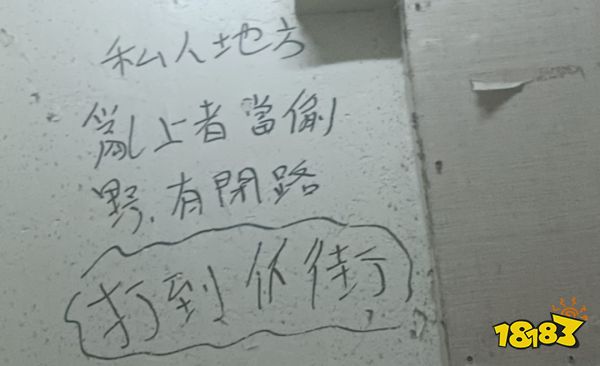 私人地方
亂上者當偷
野,有閉路
打到仆街
18183